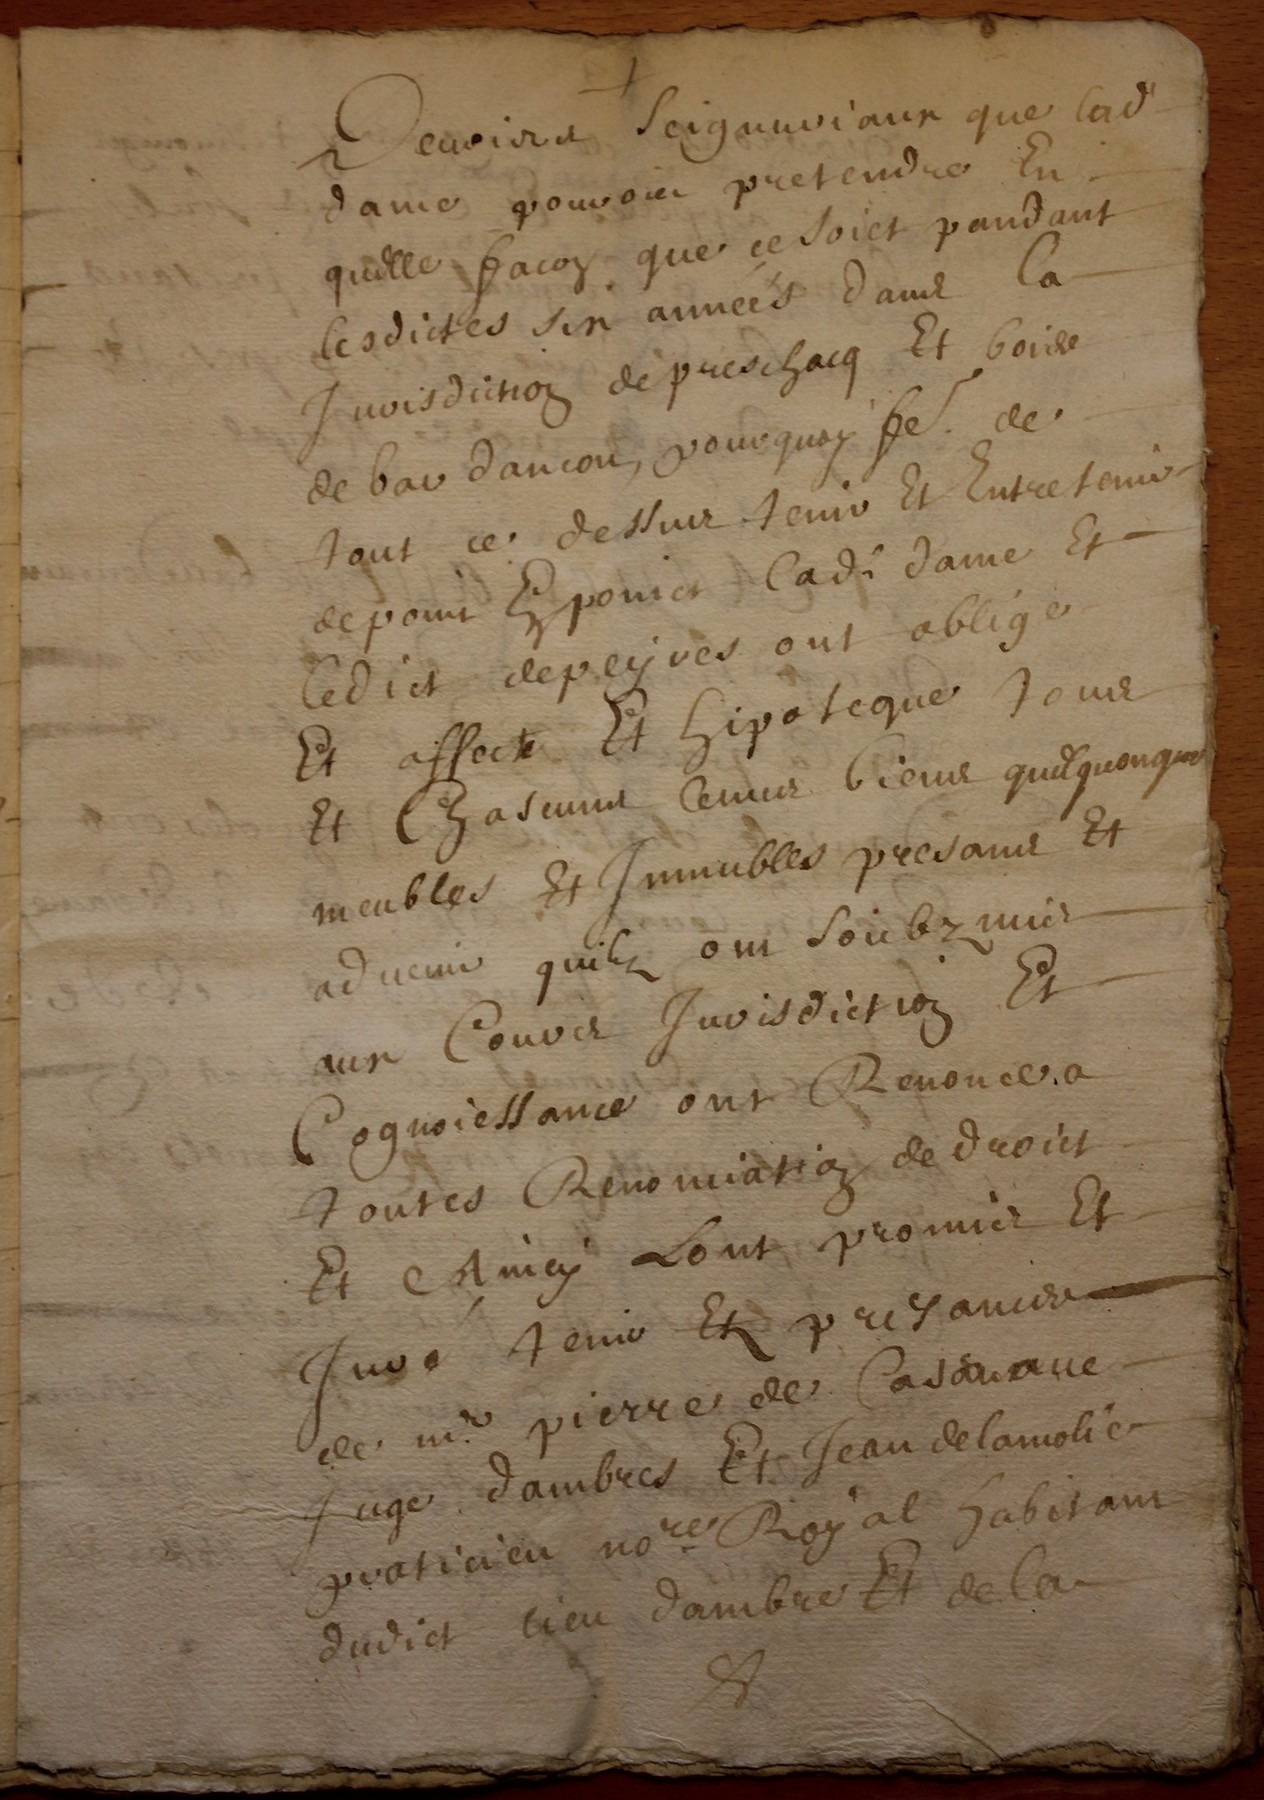 Devoirs Seigneuriaux que lad
dame pouvoir pretendre En
quelle facon que ce soict pandant
lesdictes six années dans la
Jurisdiction de preschacq Et boirie
de bardancou, pourquoy fe. de
tout ce dessus tenir Et Entretenir
de point En point lad. dame Et
ledict depeyres ont oblige
Et affecte Et hipoteque tous
Et Chascuns leurs biens quelquonques
meubles Et Immubles presans Et
advenir quilz ont soubzmis
aux Cours Jurisdiction Et
Cognoiessance ont Renonce a
toutes Renonciation de droict
Et Ainsy Lont promis Et
Juré tenir Ez presances
de mr pierre de Casanaue
Juge dambres Et Jean delamolie
praticien nore Royal habitans
dudict lieu dambre Et de la